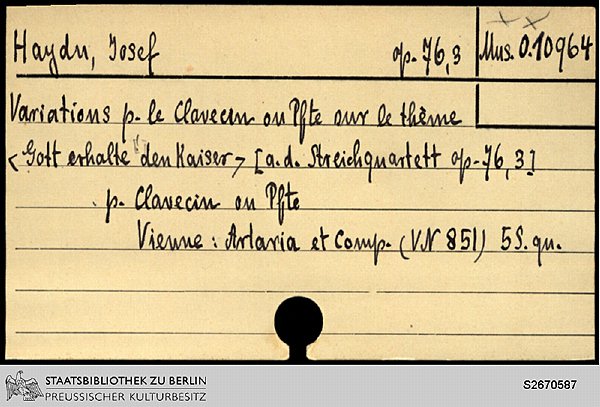 Haydn, Josef op. 76,3 Mus. O.10964
Variations p. le Clavecin ou Pfte sur le thême
<Gott erhalte den Kaiser> [a.d. Streichquartett op. 76,3]
p. Clavecin ou Pfte
Vienne: Artaria et Comp. (VN 851) 5 S. qu.
STAATSBIBLIOTHEK ZU BERLIN
PREUSSISCHER KULTURBESITZ
S2670587